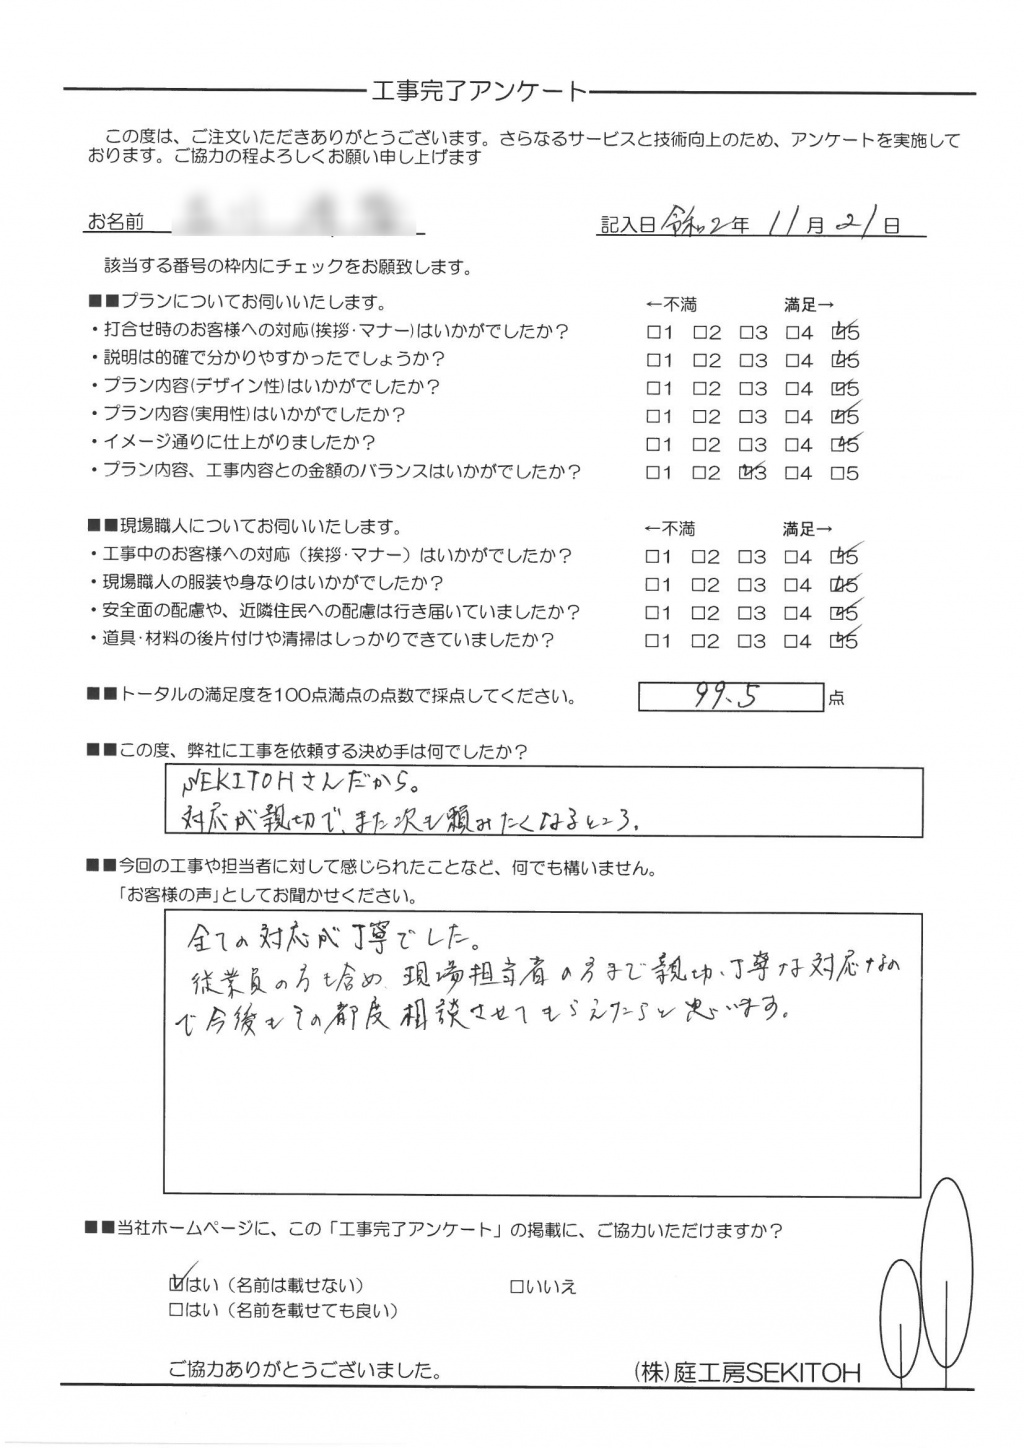 工事完了アンケート
この度は、ご注文いただきありがとうございます。さらなるサービスと技術向上のため、アンケートを実施して
おります。ご協力の程よろしくお願い申し上げます
お名前 記入日 令和2年 11月21日
該当する番号の枠内にチェックをお願致します。
■■プランについてお伺いいたします。 ←不満 満足→
・打合せ時のお客様への対応(挨拶･マナー)はいかがでしたか? □1 □2 □3 □4 ☑5
・説明は的確で分かりやすかったでしょうか? □1 □2 □3 □4 ☑5
・プラン内容(デザイン性)はいかがでしたか? □1 □2 □3 □4 ☑5
・プラン内容(実用性)はいかがでしたか? □1 □2 □3 □4 ☑5
・イメージ通りに仕上がりましたか? □1 □2 □3 □4 ☑5
・プラン内容、工事内容との金額のバランスはいかがでしたか? □1 □2 ☑3 □4 □5
■■現場職人についてお伺いいたします。 ←不満 満足→
・工事中のお客様への対応（挨拶･マナー）はいかがでしたか? □1 □2 □3 □4 ☑5
・現場職人の服装や身なりはいかがでしたか? □1 □2 □3 □4 ☑5
・安全面の配慮や、近隣住民への配慮は行き届いていましたか? □1 □2 □3 □4 ☑5
・道具･材料の後片付けや清掃はしっかりできていましたか? □1 □2 □3 □4 ☑5
■■トータルの満足度を100点満点の点数で採点してください。 99.5 点
■■この度、弊社に工事を依頼する決め手は何でしたか?
SEKITOHさんだから。
対応が親切で、また次も頼みたくなるところ。
■■今回の工事や担当者に対して感じられたことなど、何でも構いません。
「お客様の声」としてお聞かせください。
全ての対応が丁寧でした。
従業員の方も含め、現場担当者の方まで親切、丁寧な対応なの
で今後もその都度相談させてもらえたらと思います。
■■当社ホームページに、この「工事完了アンケート」の掲載に、ご協力いただけますか?
☑はい（名前は載せない） □いいえ
□はい（名前を載せても良い）
ご協力ありがとうございました。 (株)庭工房SEKITOH